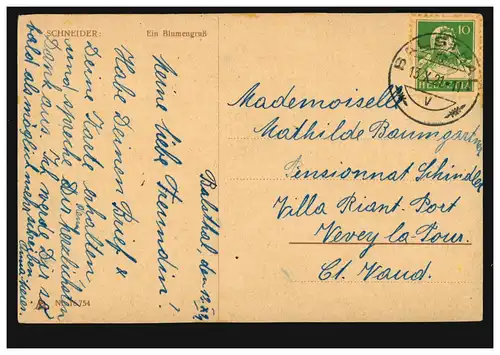 SCHNEIDER:
Ein Blumengruß
Balsthal den 13. X. 21
Meine liebe Freundin!
Habe Deinen Brief &
Deine Karte erhalten
und spreche Dir den herzlichsten
Dank aus. Ich werde Dir so
bald als möglich mehr schreiben
10
HELVETIA
BALSTHAL
13. X. 21
V
Mademoiselle
Mathilde Baumgartner
Pensionnat Schindler
Villa Riant-Port
Vevey la-Tour.
Ct. Vaud.